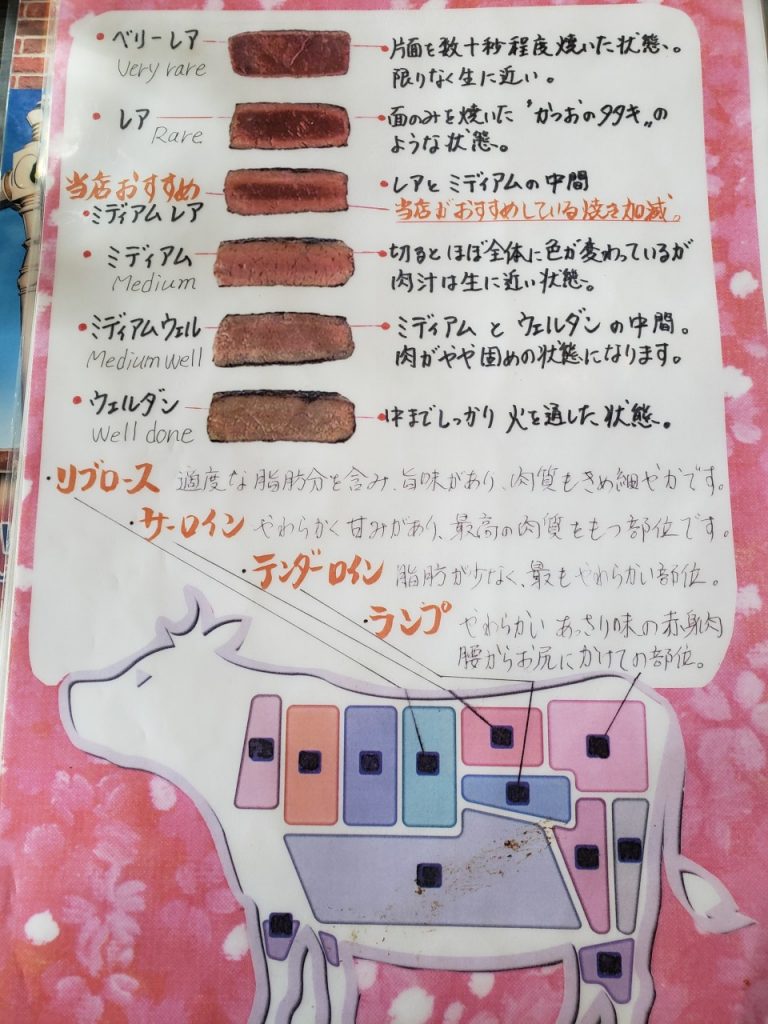 ・ベリーレア
Very rare
・片面を数十秒程度焼いた状態。
限りなく生に近い。
・レア
Rare
・面のみを焼いた〝かつおのタタキ〟の
ような状態。
当店おすすめ
・ミディアムレア
・レアとミディアムの中間
当店がおすすめしている焼き加減。
・ミディアム
Medium
・切るとほぼ全体に色が変わっているが
肉汁は生に近い状態。
・ミディアムウェル
Medium well
・ミディアムとウェルダンの中間。
肉がやや固めの状態になります。
・ウェルダン
Well done
・中までしっかり火を通した状態。
・リブロース 適度な脂肪分を含み、旨味があり、肉質もきめ細やかです。
・サーロイン やわらかく甘みがあり、最高の肉質をもつ部位です。
・テンダーロイン 脂肪が少なく、最もやわらかい部位。
・ランプ やわらかいあっさり味の赤身肉
腰からお尻にかけての部位。